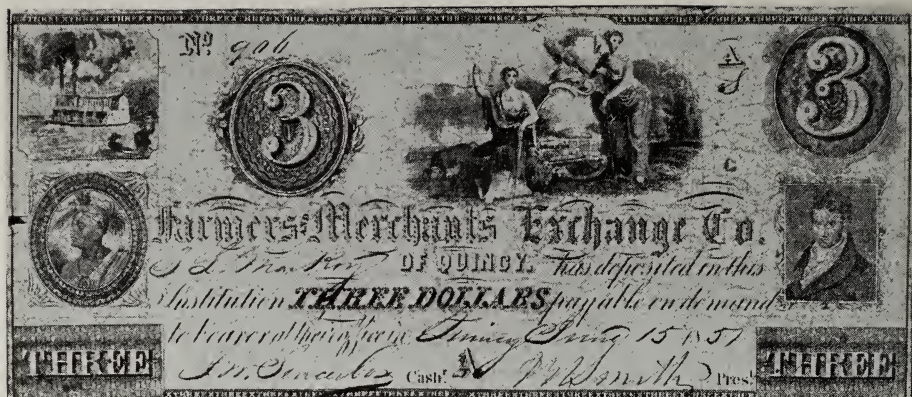 Nº 906
3
3
A
C
Farmers & Merchants Exchange Co.
OF QUINCY, has deposited in this
Institution THREE DOLLARS payable on demand
to bearer at their office in Quincy 15 1851
THREE
Cashr.
Smith Prest.
THREE